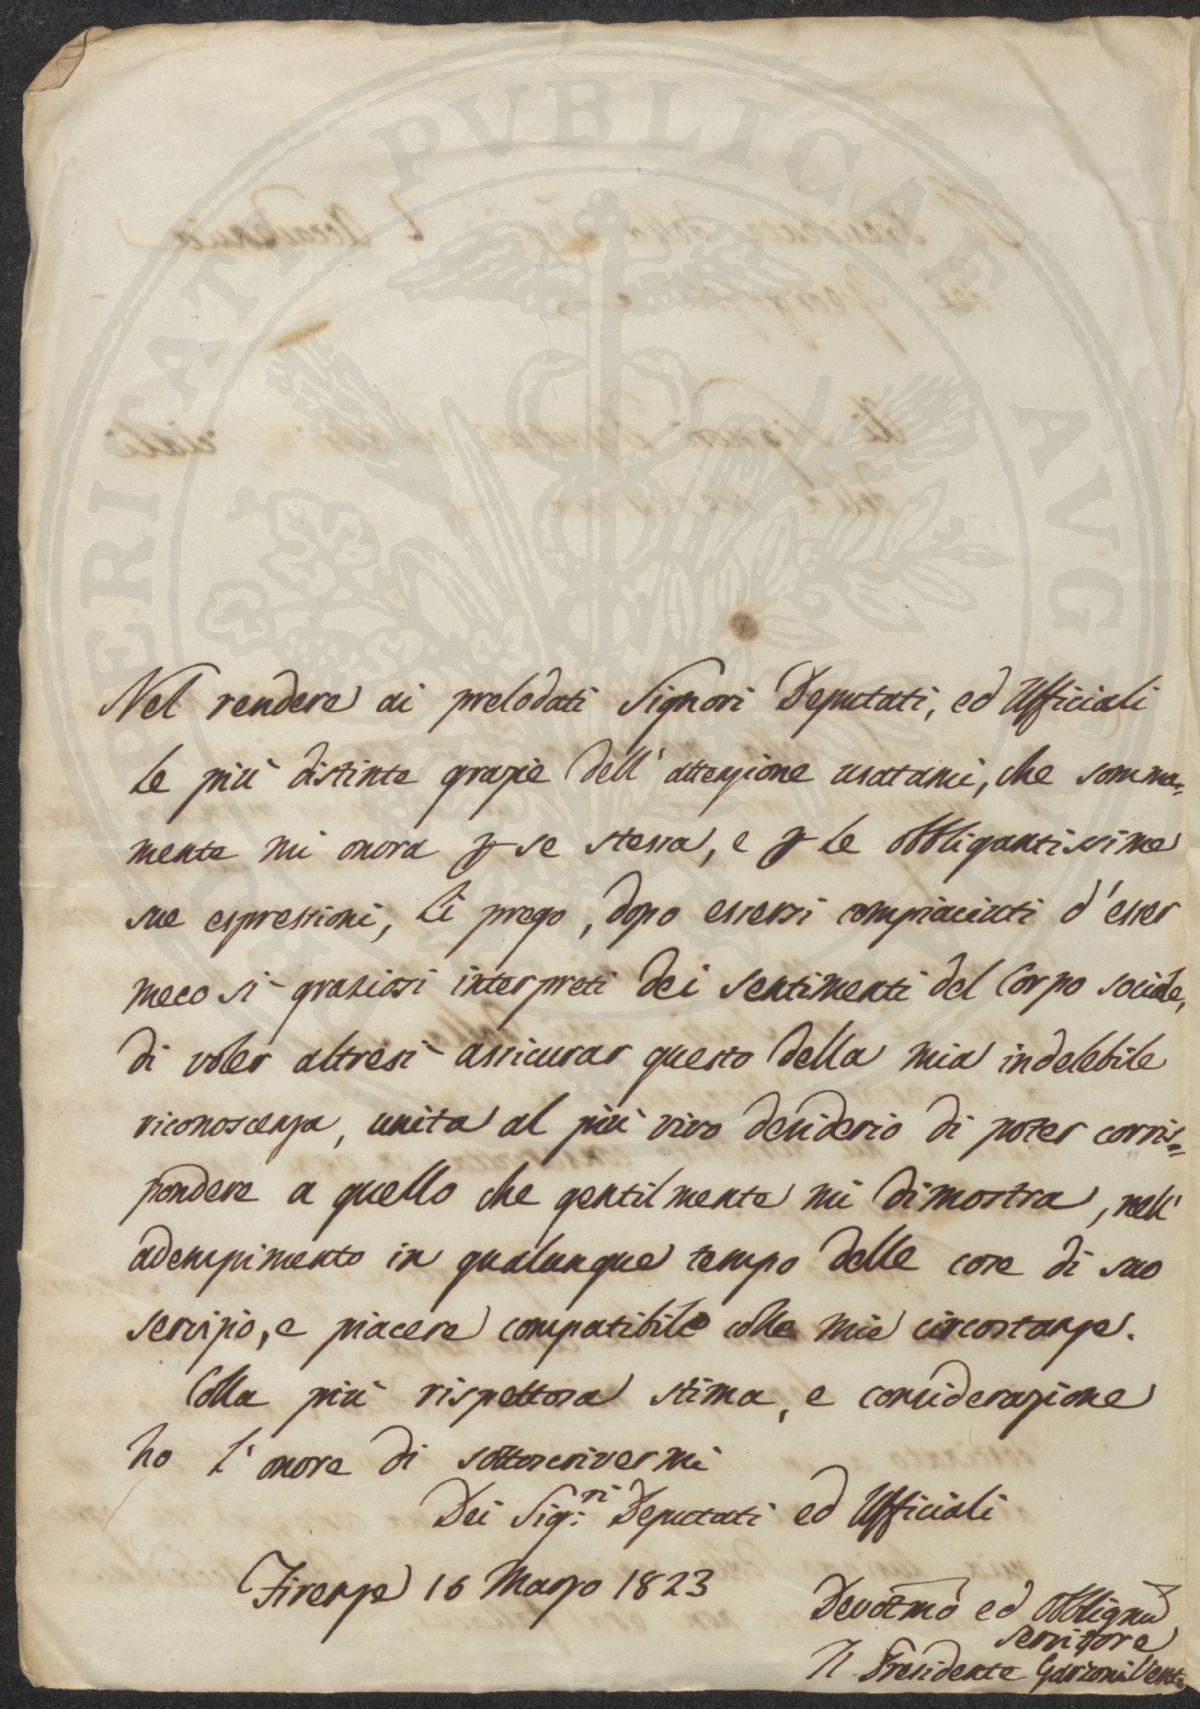 PROSPERITATI PVBLICAE AVG
Nel rendere ai prelodati Signori Deputati, ed Ufficiali
le più distinte grazie dell' attenzione usatami, che somma=
mente mi onora p se stessa, e p le obbligantissime
sue espressioni, li prego, dopo essersi compiaciuti d'esser
meco sì graziosi interpreti dei sentimenti del Corpo sociale,
di voler altresì assicurar questo della mia indelebile
riconoscenza, unita al più vivo desiderio di poter corris=
pondere a quello che gentilmente mi dimostra, nell'
adempimento in qualunque tempo delle cose di suo
servizio, e piacere compatibile colle mie circostanze.
Colla più rispettosa stima, e considerazione
ho l'onore di sottoscrivermi
Dei Sig.ri Deputati ed Ufficiali
Firenze 16 Marzo 1823
Devotmo ed Obbligmo
Servitore
Il Presidente Garzoni Ventu